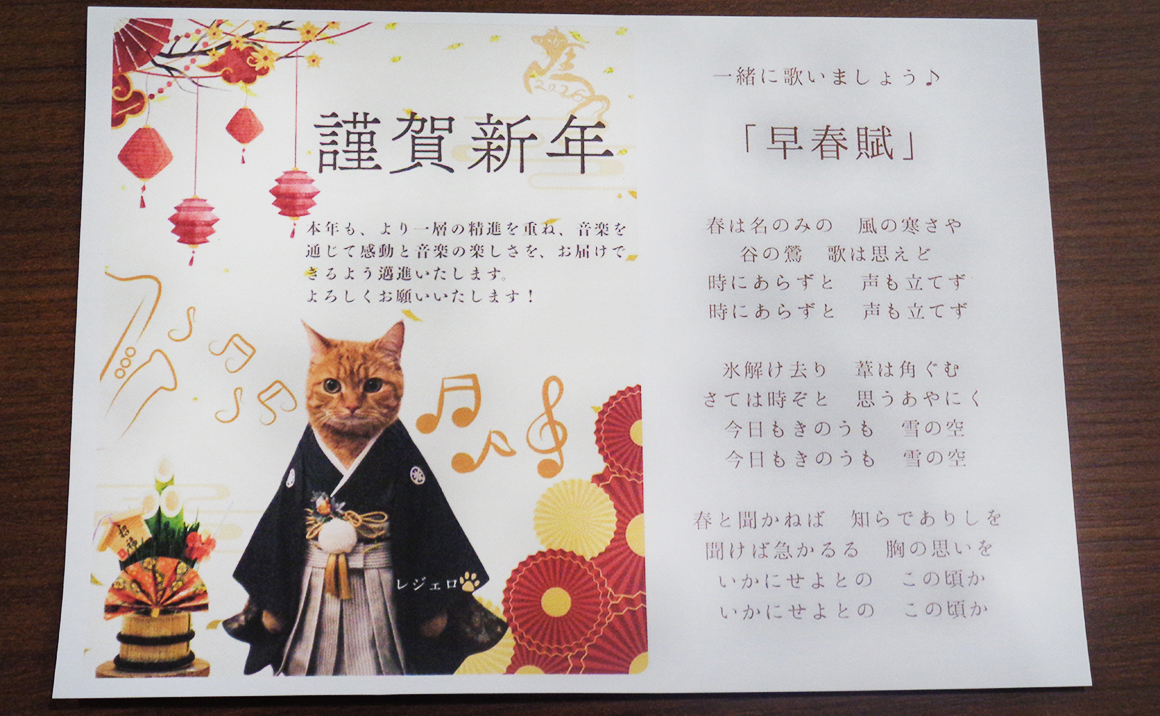 2026
謹賀新年
本年も、より一層の精進を重ね、音楽を
通じて感動と音楽の楽しさを、お届けで
きるよう邁進いたします。
よろしくお願いいたします！
招福
レジェロ
一緒に歌いましょう♪
「早春賦」
春は名のみの　風の寒さや
谷の鶯　歌は思えど
時にあらずと　声も立てず
時にあらずと　声も立てず
氷解け去り　葦は角ぐむ
さては時ぞと　思うあやにく
今日もきのうも　雪の空
今日もきのうも　雪の空
春と聞かねば　知らでありしを
聞けば急かるる　胸の思いを
いかにせよとの　この頃か
いかにせよとの　この頃か